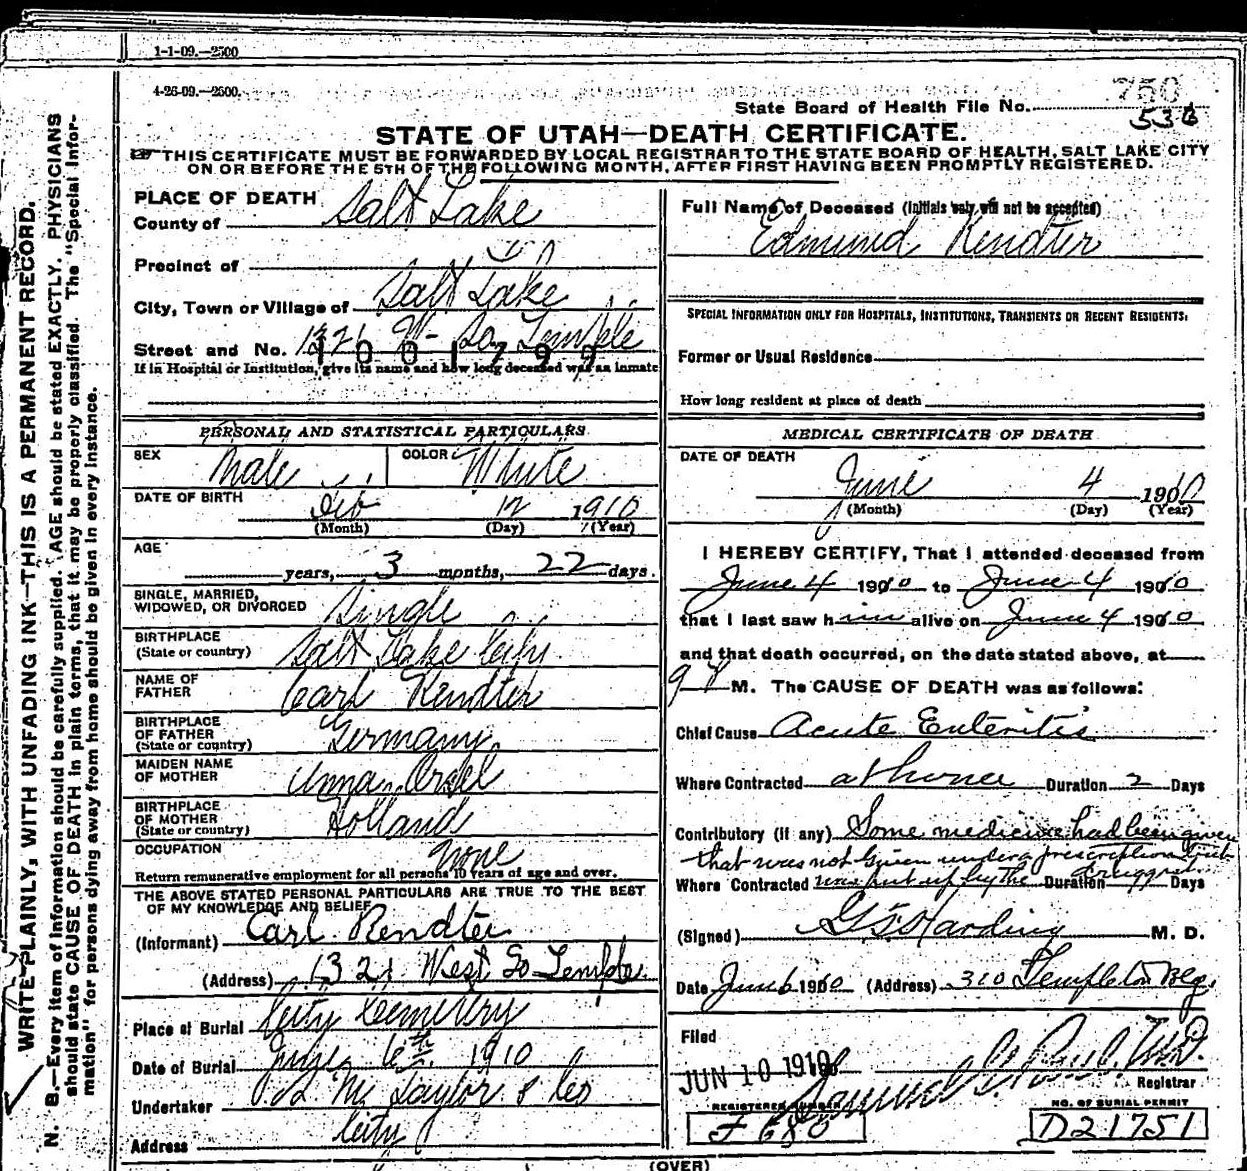 1-1-09.—2500
4-26-09.—2500.
750
State Board of Health File No. 536
STATE OF UTAH—DEATH CERTIFICATE.
THIS CERTIFICATE MUST BE FORWARDED BY LOCAL REGISTRAR TO THE STATE BOARD OF HEALTH, SALT LAKE CITY
ON OR BEFORE THE 5TH OF THE FOLLOWING MONTH, AFTER FIRST HAVING BEEN PROMPTLY REGISTERED.
WRITE PLAINLY, WITH UNFADING INK—THIS IS A PERMANENT RECORD.
N. B.—Every item of information should be carefully supplied. AGE should be stated EXACTLY. PHYSICIANS
should state CAUSE OF DEATH in plain terms, that it may be properly classified. The "Special Infor-
mation" for persons dying away from home should be given in every instance.
PLACE OF DEATH
County of Salt Lake
Precinct of
City, Town or Village of Salt Lake
Street and No. 1321 W- So Temple
1001799
If in Hospital or Institution, give its name and how long deceased was an inmate
PERSONAL AND STATISTICAL PARTICULARS
SEX Male COLOR White
DATE OF BIRTH Feb 12 1910
(Month) (Day) (Year)
AGE
years, 3 months, 22 days.
SINGLE, MARRIED,
WIDOWED, OR DIVORCED Single
BIRTHPLACE
(State or country) Salt Lake City
NAME OF
FATHER Carl Rendter
BIRTHPLACE
OF FATHER
(State or country) Germany
MAIDEN NAME
OF MOTHER Anna Orsel
BIRTHPLACE
OF MOTHER
(State or country) Holland
OCCUPATION none
Return remunerative employment for all persons 10 years of age and over.
THE ABOVE STATED PERSONAL PARTICULARS ARE TRUE TO THE BEST
OF MY KNOWLEDGE AND BELIEF
(Informant) Carl Rendter
(Address) 1321 West So Temple
Place of Burial City Cemetery
Date of Burial June 6th 1910
Undertaker S. M. Taylor & Co
Address City
Full Name of Deceased (Initials only will not be accepted)
Edmund Rendter
SPECIAL INFORMATION ONLY FOR HOSPITALS, INSTITUTIONS, TRANSIENTS OR RECENT RESIDENTS:
Former or Usual Residence
How long resident at place of death
MEDICAL CERTIFICATE OF DEATH
DATE OF DEATH
June 4 1910
(Month) (Day) (Year)
I HEREBY CERTIFY, That I attended deceased from
June 4 1910 to June 4 1910
that I last saw him alive on June 4 1910
and that death occurred, on the date stated above, at
9 P M. The CAUSE OF DEATH was as follows:
Chief Cause Acute Enteritis
Where Contracted at home Duration 2 Days
Contributory (if any) Some medicine had been given
that was not given under a prescription but
Where Contracted was put up by the Duration druggist Days
(Signed) G S Harding M. D.
Date June 6 1910 (Address) 310 Templeton Blg.
Filed
JUN 10 1910
Samuel G. Paul, M.D.
Registrar
REGISTERED NUMBER
F 680
NO. OF BURIAL PERMIT
D21751
(OVER)